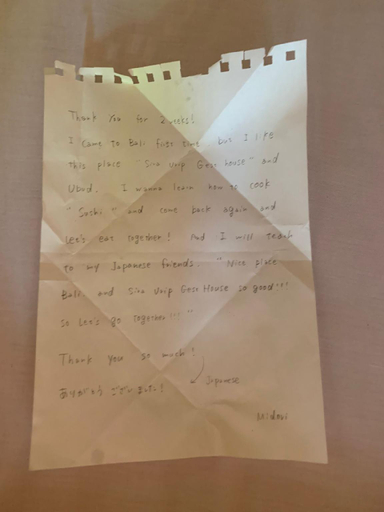 Thank You for 2 weeks!
I came to Bali first time but I like
this place "Sina Voip Gest house" and
Ubud. I wanna learn how to cook
"Sushi" and come back again and
Let's eat together! And I will teach
to my Japanese friends. "Nice place
Bali and Sina Voip Gest House so good!!!
so Let's go together!!!"
Thank you so much!
ありがとう ございました! Japanese
Midori